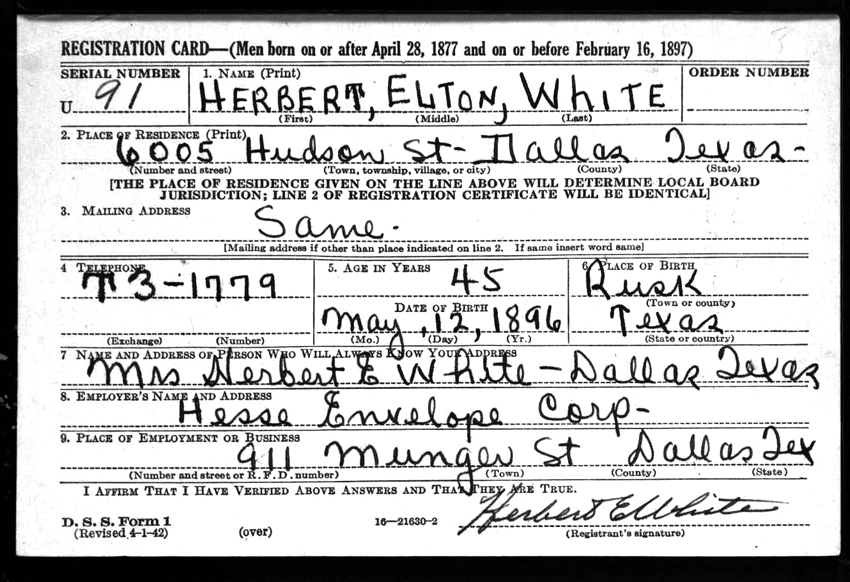 REGISTRATION CARD—(Men born on or after April 28, 1877 and on or before February 16, 1897)
SERIAL NUMBER 1. NAME (Print) ORDER NUMBER
U 91 HERBERT, ELTON, WHITE
(First) (Middle) (Last)
2. PLACE OF RESIDENCE (Print)
6005 Hudson St- Dallas Texas-
(Number and street) (Town, township, village, or city) (County) (State)
[THE PLACE OF RESIDENCE GIVEN ON THE LINE ABOVE WILL DETERMINE LOCAL BOARD
JURISDICTION; LINE 2 OF REGISTRATION CERTIFICATE WILL BE IDENTICAL]
3. MAILING ADDRESS
Same-
[Mailing address if other than place indicated on line 2. If same insert word same]
4 TELEPHONE 5. AGE IN YEARS 6. PLACE OF BIRTH
T3-1779 45 Rusk
(Town or county)
DATE OF BIRTH
May, 12, 1896 Texas
(Exchange) (Number) (Mo.) (Day) (Yr.) (State or country)
7 NAME AND ADDRESS OF PERSON WHO WILL ALWAYS KNOW YOUR ADDRESS
Mrs Herbert E White-Dallas Texas
8. EMPLOYER'S NAME AND ADDRESS
Hesse Envelope Corp-
9. PLACE OF EMPLOYMENT OR BUSINESS
911 Munger St Dallas Tex
(Number and street or R. F. D. number) (Town) (County) (State)
I AFFIRM THAT I HAVE VERIFIED ABOVE ANSWERS AND THAT THEY ARE TRUE.
Herbert E White
D. S. S. Form 1 16—21630-2
(Revised 4-1-42) (over) (Registrant's signature)